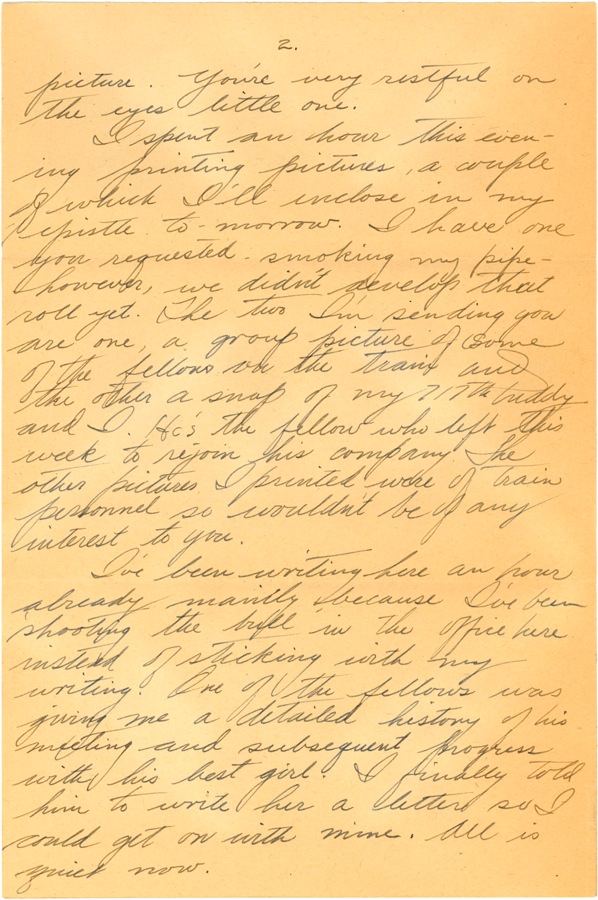 2.
picture. You're very restful on
the eyes little one.
I spent an hour this even-
ing printing pictures, a couple
of which I'll inclose in my
epistle to-morrow. I have one
you requested - smoking my pipe -
however, we didn't develop that
roll yet. The two I'm sending you
are one, a group picture of some
of the fellows on the train and
the other a snap of my 717th buddy
and I. He's the fellow who left this
week to rejoin his company. The
other pictures I printed were of train
personnel so wouldn't be of any
interest to you.
I've been writing here an hour
already mainly because I've been
shooting the bull in the office here
instead of sticking with my
writing. One of the fellows was
giving me a detailed history of his
meeting and subsequent progress
with his best girl. I finally told
him to write her a letter so I
could get on with mine. All is
quiet now.